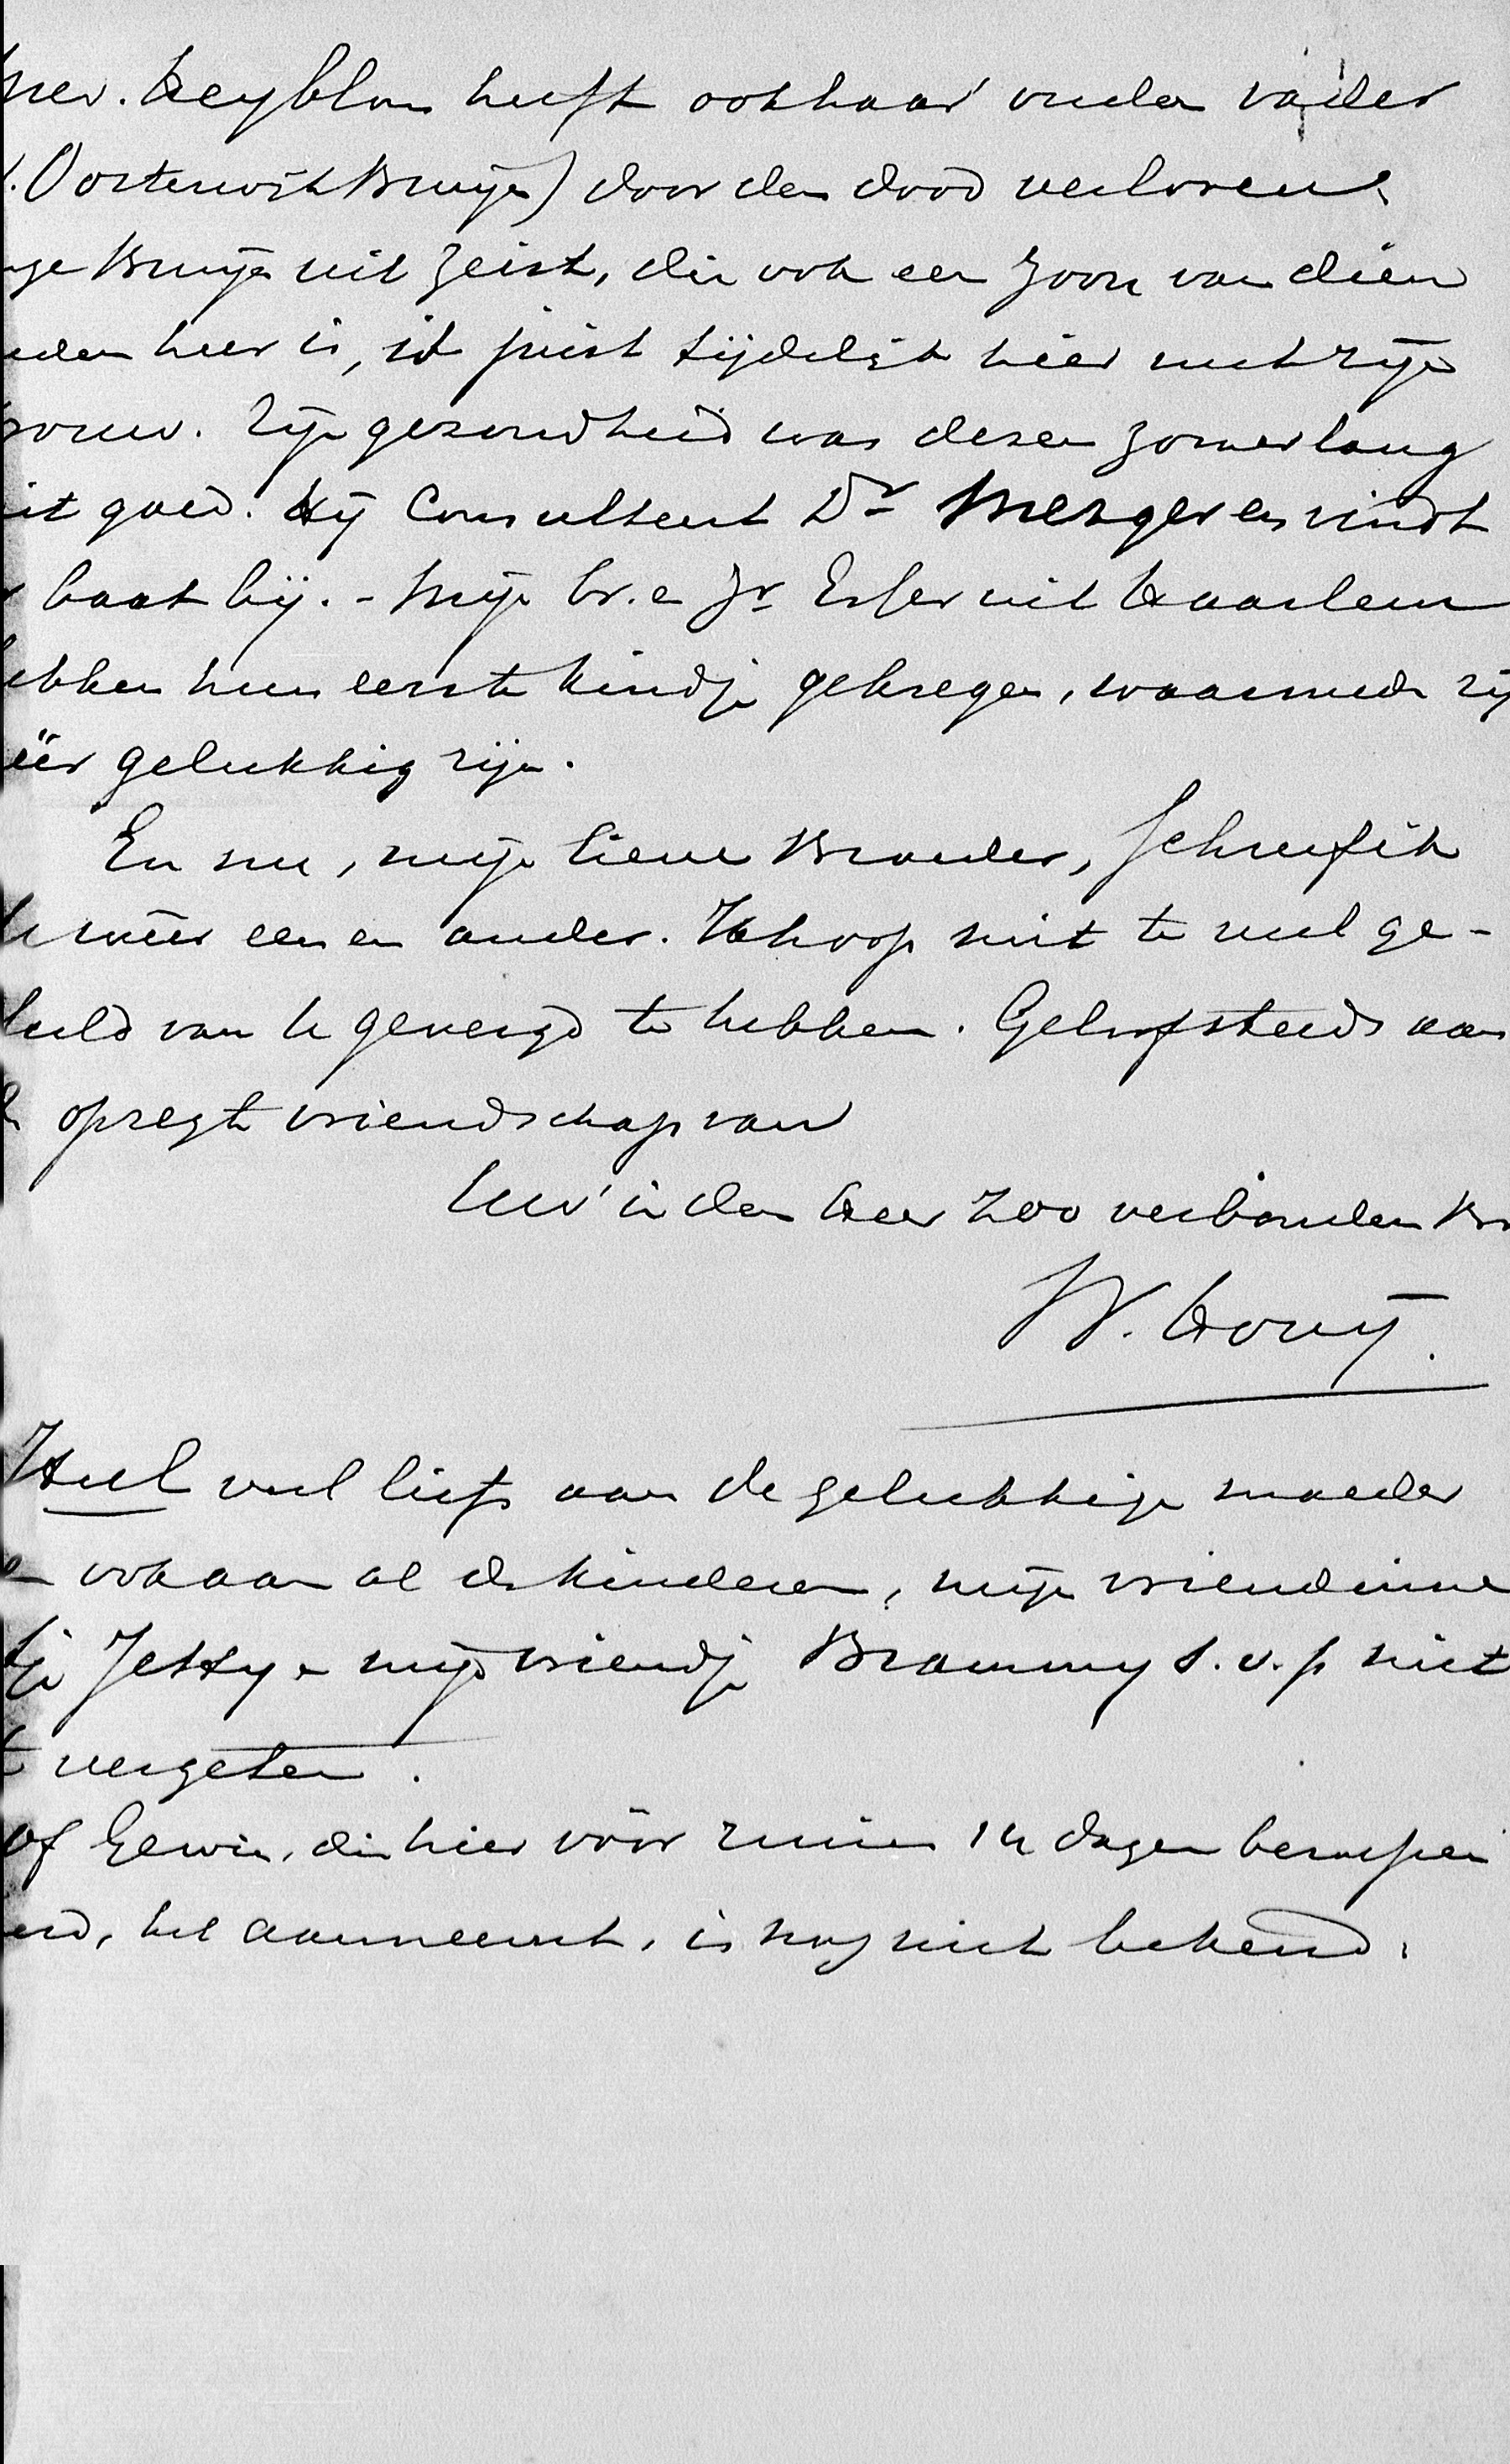 mev. Heyblom heeft ook haar ouden vader
. Oosterwijk Bruijn) door den dood verloren.
ge Bruijn uit Zeist, die ook een zoon van dien
uden heer is, is juist tijdelijk hier met zijn
rouw. Zijn gezondheid was dezen zomer lang
iet goed. Hij consulteert Dr Mezger en vindt
r baat bij. - Mijn br. en zr Esser uit Haarlem
ebben hun eerste kindje gekregen, waarmede zij
éér gelukkig zijn.
En nu, mijn lieve Broeder, schreef ik
U weer een en ander. Ik hoop niet te veel ge-
duld van U gevergd te hebben. Geloof steeds aan
de opregte vriendschap van
Uw in den Heer zoo verbonden Br
W. Hovy.
Heel veel liefs aan de gelukkige moeder
en ook aan al de kinderen, mijn vriendinne
tje Jetty en mijn vriendje Brammy s.v.p. niet
te vergeten.
of Gewin, die hier vóór ruim 14 dagen beroepen
erd, het aanneemt, is nog niet bekend.